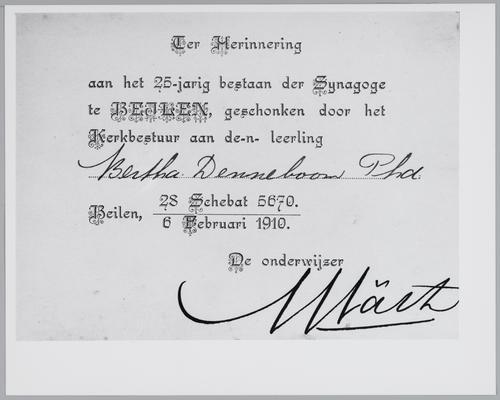 Ter Herinnering
aan het 25-jarig bestaan der Synagoge
te BEILEN, geschonken door het
Kerkbestuur aan de-n- leerling
Bertha Denneboom Phd.
28 Schebat 5670.
Beilen,
6 Februari 1910.
De onderwijzer